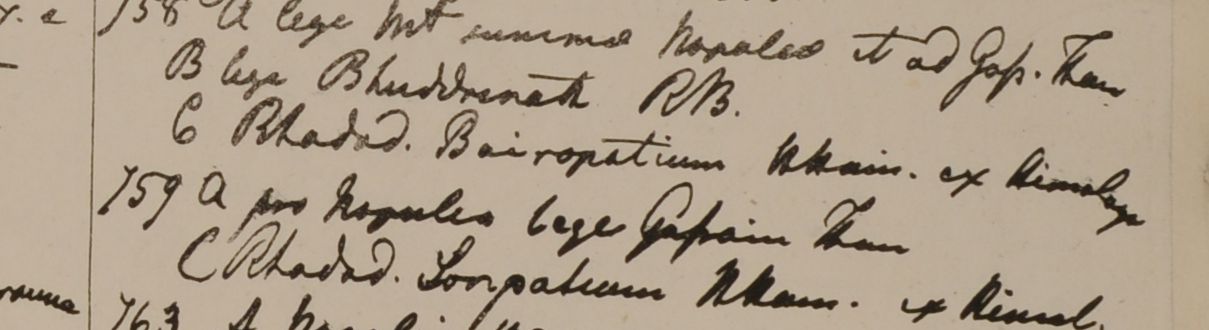 758 A lege Mt summa Napalea et ad Gos. Than
B lege Bhuddrinath RB.
C Rhadod. Bairopatium Kkam. ex Himalaya
759 A pro Napalea lege Gossain Than
C Rhadod. Sooropatium Kkam. ex Himal.
763 A